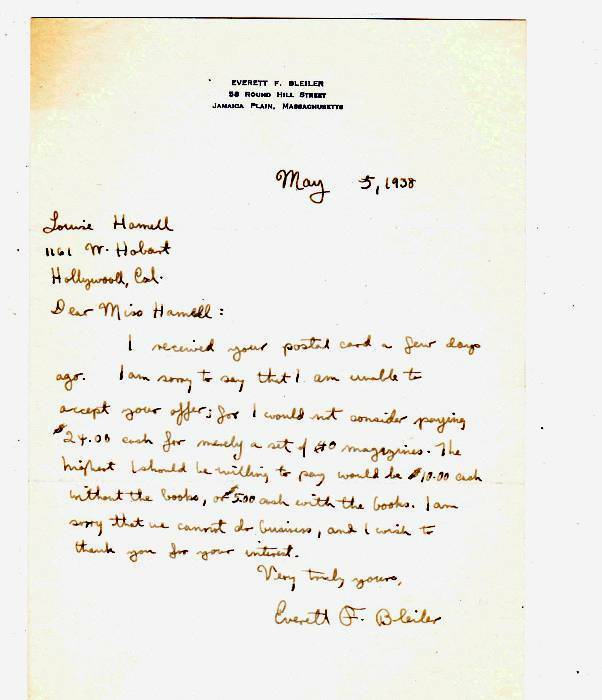 EVERETT F. BLEILER
58 ROUND HILL STREET
JAMAICA PLAIN, MASSACHUSETTS
May 5, 1938
Louise Hamell
1161 W. Hobart
Hollywood, Cal.
Dear Miss Hamell :
I received your postal card a few days
ago. I am sorry to say that I am unable to
accept your offer; for I would not consider paying
$24.00 cash for merely a set of 40 magazines. The
highest I should be willing to pay would be $10.00 cash
without the books, or $5.00 cash with the books. I am
sorry that we cannot do business, and I wish to
thank you for your interest.
Very truly yours,
Everett F. Bleiler